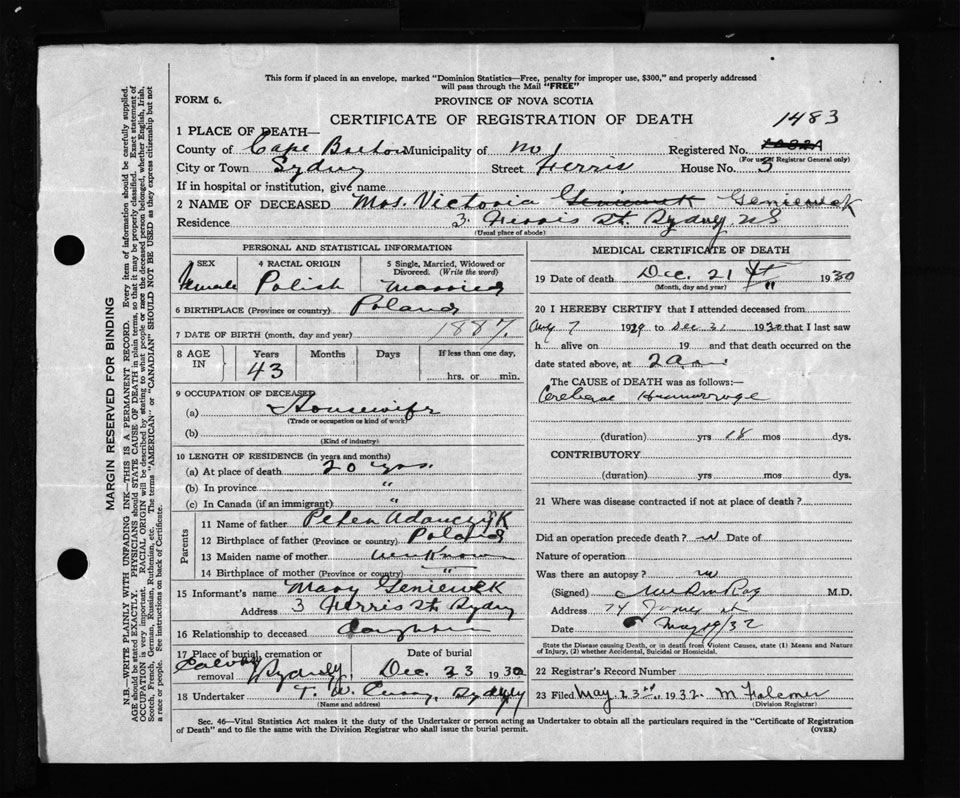 This form if placed in an envelope, marked "Dominion Statistics—Free, penalty for improper use, $300," and properly addressed
will pass through the Mail "FREE"
FORM 6.
PROVINCE OF NOVA SCOTIA
CERTIFICATE OF REGISTRATION OF DEATH
1483
1 PLACE OF DEATH—
County of Cape Breton Municipality of No 1 Registered No.
(For use of Registrar General only)
City or Town Sydney Street Ferris House No. 3
If in hospital or institution, give name
2 NAME OF DECEASED Mrs. Victoria Geniewek Geniewek
Residence 3. Ferris St. Sydney. NS
(Usual place of abode)
PERSONAL AND STATISTICAL INFORMATION
3 SEX 4 RACIAL ORIGIN 5 Single, Married, Widowed or
Divorced. (Write the word)
Female Polish Married
6 BIRTHPLACE (Province or country) Poland
7 DATE OF BIRTH (month, day and year) 1887.
8 AGE IN Years Months Days If less than one day,
43 hrs. or min.
9 OCCUPATION OF DECEASED
(a) Housewife
(Trade or occupation or kind of work)
(b)
(Kind of industry)
10 LENGTH OF RESIDENCE (in years and months)
(a) At place of death 20 yrs.
(b) In province "
(c) In Canada (if an immigrant) "
Parents
11 Name of father Peter Adamczyk
12 Birthplace of father (Province or country) Poland
13 Maiden name of mother unknown
14 Birthplace of mother (Province or country) "
15 Informant's name Mary Geniewek
Address 3 Ferris St. Sydney
16 Relationship to deceased Daughter
17 Place of burial, cremation or removal Date of burial
Calvary Sydney Dec. 23 1930
18 Undertaker T. W. Curry, Sydney
(Name and address)
MEDICAL CERTIFICATE OF DEATH
19 Date of death Dec. 21 st 1930
(Month, day and year) "
20 I HEREBY CERTIFY that I attended deceased from
Aug 7 1929 to Dec 21 1930 that I last saw
h alive on 19 and that death occurred on the
date stated above, at 2 a.m.
The CAUSE of DEATH was as follows:
Cerebral Hemorrhage
(duration) yrs 18 mos dys.
CONTRIBUTORY
(duration) yrs mos dys.
21 Where was disease contracted if not at place of death?
Did an operation precede death? Date of
Nature of operation
Was there an autopsy?
(Signed) M.D.
Address 74 St
Date May 19/32
State the Disease causing Death, or in death from Violent Causes, state (1) Means and Nature
of Injury, (2) whether Accidental, Suicidal or Homicidal.
22 Registrar's Record Number
23 Filed May 23rd, 1932. M Falconer
(Division Registrar)
Sec. 46—Vital Statistics Act makes it the duty of the Undertaker or person acting as Undertaker to obtain all the particulars required in the "Certificate of Registration
of Death" and to file the same with the Division Registrar who shall issue the burial permit.
(OVER)
MARGIN RESERVED FOR BINDING
N.B.—WRITE PLAINLY WITH UNFADING INK—THIS IS A PERMANENT RECORD. Every item of information should be carefully supplied.
AGE should be stated EXACTLY. PHYSICIANS should STATE CAUSE OF DEATH in plain terms, so that it may be properly classified. Exact statement of
OCCUPATION is very important. RACIAL ORIGIN will be described by stating to what people or race the deceased person belonged, whether English, Irish,
Scotch, French, German, Russian, Ruthenian, etc. The terms "AMERICAN" or "CANADIAN" SHOULD NOT BE USED as they express citizenship but not
a race or people. See instructions on back of Certificate.